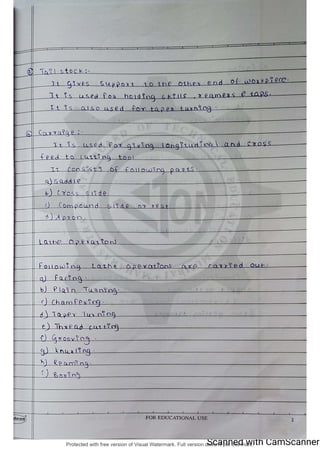 ⑤ Tail stock :-
It gives support to the other end of workpiece.
It is used for holding drills, reamers & taps.
It is also used for taper turning.
⑥ Carraige :
It is used for giving longitudinal and cross
feed to cutting tool
It consists of following parts
a) saddle
b) Cross slide
c) Compound slide or rest
d) Apron.
Lathe Operation
Following Lathe operations are carried out
a) Facing
b) Plain Turning
c) Chamfering
d) Taper turning
e) Thread cutting
f) Grooving
g) knurling
h) Reaming
i) Boring
FOR EDUCATIONAL USE
2
Protected with free version of Visual Watermark. Full version
Scanned with CamScanner